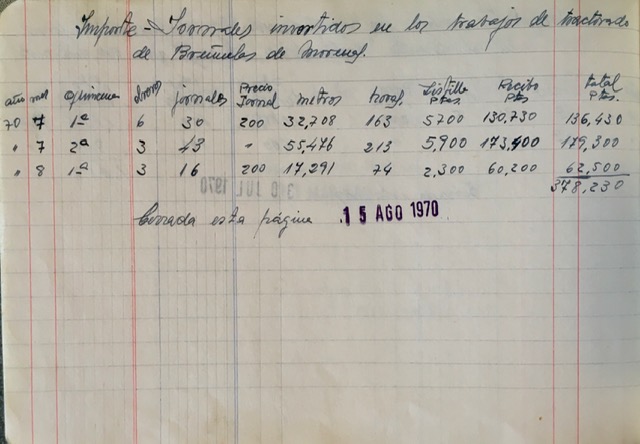 Importe - Jornales invertidos en los trabajos de tractorado
de Breñuelas de Morenas.
año mes Quincena Obreros jornales Precio Jornal metros horas Listillo Ptas. Recibo Pts total Ptas.
70 7 1ª 6 30 200 32,708 163 5700 130,730 136,430
" 7 2ª 3 43 " 55,476 213 5,900 173,400 179,300
" 8 1ª 3 16 200 17,291 74 2,300 60,200 62,500
378,230
Cerrada esta página 15 AGO 1970
30 JUL 1970